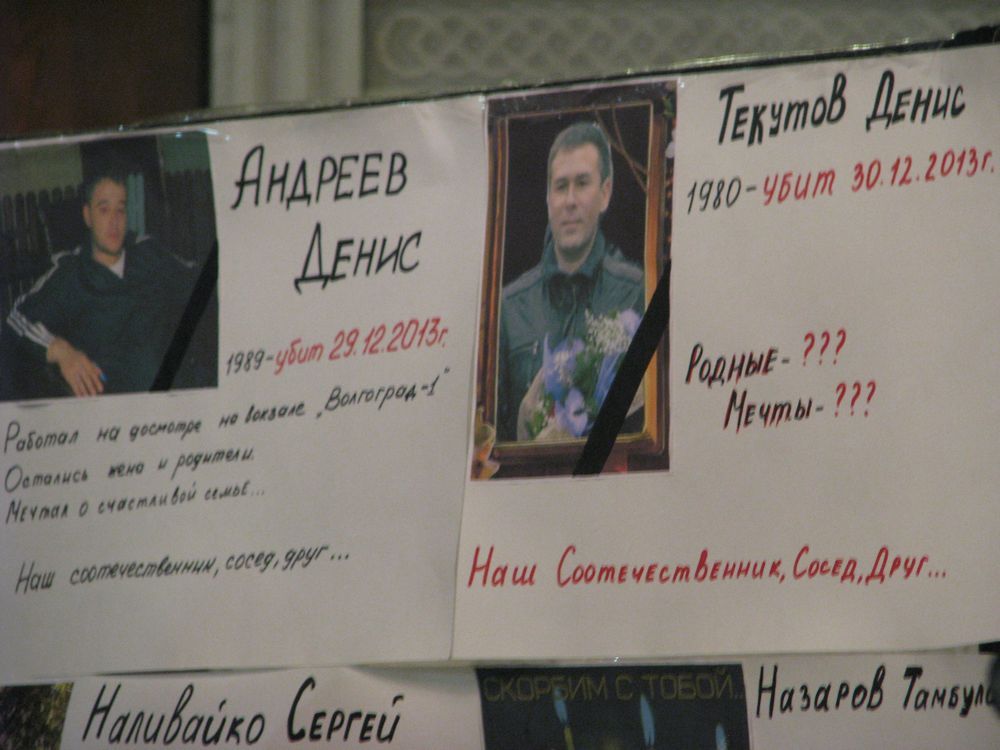 Андреев
Денис
1989-убит 29.12.2013г.
Работал на досмотре на вокзале „Волгоград-1"
Остались жена и родители.
Мечтал о счастливой семье...
Наш соотечественник, сосед, друг...
Текутов Денис
1980-убит 30.12.2013г.
Родные- ???
Мечты- ???
Наш Соотечественник, Сосед, Друг...
Наливайко Сергей
СКОРБИМ С ТОБОЙ...
Назаров